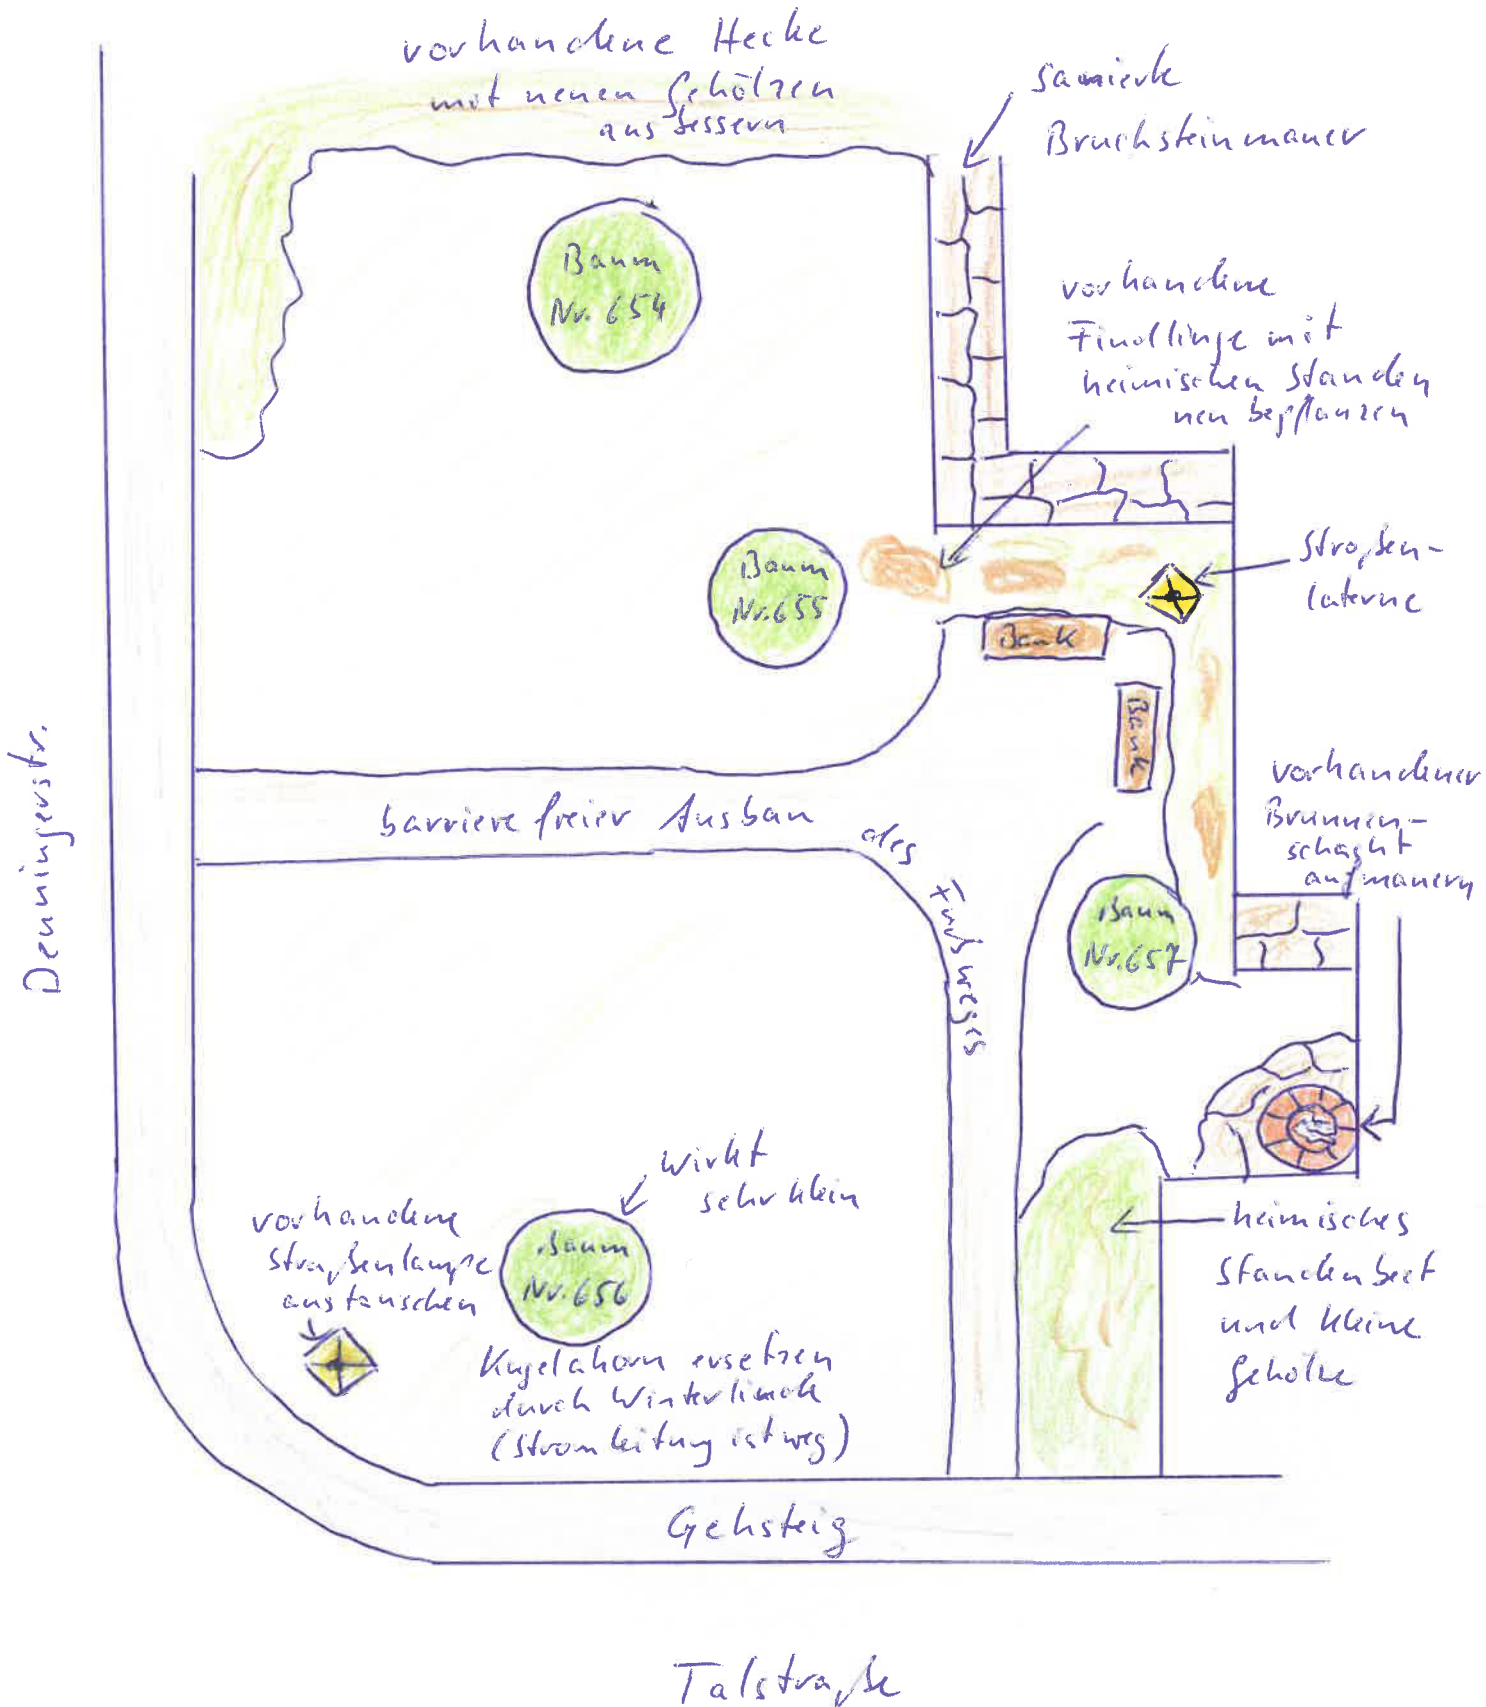 vorhandene Hecke
mit neuen Gehölzen
ausbessern
sanierte
Bruchsteinmauer
Baum
Nr. 654
vorhandene
Findlinge mit
heimischen Stauden
neu bepflanzen
Baum
Nr. 655
Straßen-
laterne
Bank
Bank
Denningerstr.
vorhandener
Brunnen-
schacht
aufmauern
barrierefreier Ausbau
des
Fußweges
Baum
Nr. 657
wirkt
sehr klein
vorhandene
Straßenlampe
austauschen
Baum
Nr. 656
Kugelahorn ersetzen
durch Winterlinde
(Stromleitung ist weg)
heimisches
Staudenbeet
und kleine
Gehölze
Gehsteig
Talstraße